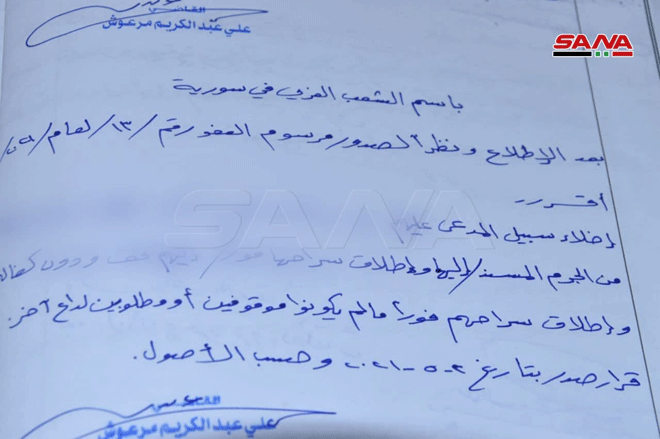 القاضي
علي عبد الكريم مرعوش
SANA
باسم الشعب العربي في سورية
بعد الإطلاع ونظراً لصدور مرسوم العفو رقم /١٣/ لعام /
أقرر --
إخلاء سبيل المدعى عليهم
من الجرم المسند إليها وإطلاق سراحها فوراً ودون كفالة
وإطلاق سراحهم فوراً مالم يكونوا موقوفين أو مطلوبين لداع آخر.
قرار صدر بتاريخ ٢-٥-٢٠٢١ وحسب الأصول.
القاضي
علي عبد الكريم مرعوش
SANA